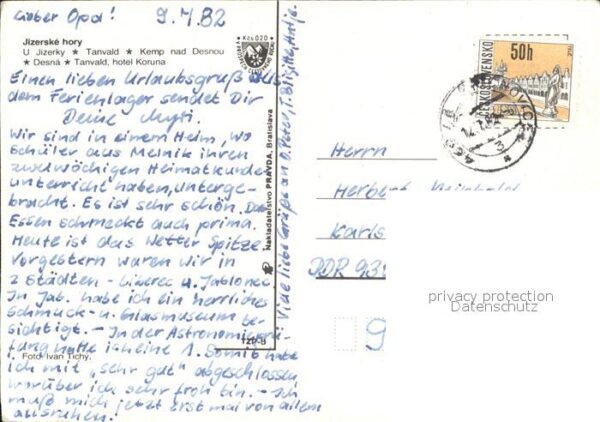 Lieber Opa! 9.7.82
Jizerské hory
U Jizerky ★ Tanvald ★ Kemp nad Desnou
★ Desná ★ Tanvald, hotel Koruna
Einen lieben Urlaubsgruß aus
dem Ferienlager sendet Dir
Deine
Wir sind in einem Heim, wo
Schüler aus Melnik ihren
zweiwöchigen Heimatkunde-
unterricht haben, unterge-
bracht. Es ist sehr schön. Das
Essen schmeckt auch prima.
Heute ist das Wetter Spitze.
Vorgestern waren wir in
2 Städten - Liberec u. Jablonec
In Jab. habe ich ein herrliches
Schmuck- u. Glasmuseum be-
sichtigt. - In der Astronomieprü-
fung hatte ich eine 1. Somit habe
ich mit "sehr gut" abgeschlossen,
worüber ich sehr froh bin. - Ich
muß mich jetzt erst mal von allem
ausruhen!
Foto Ivan Tichý
Viele liebe Grüße an O. Peter, T. Brigitte, Antje.
Nakladatelství PRAVDA, Bratislava
TZP-8
K čs 020
50h
ČESKOSLOVENSKO
Herrn
Herbert
Karls
DDR 93
9
privacy protection
Datenschutz